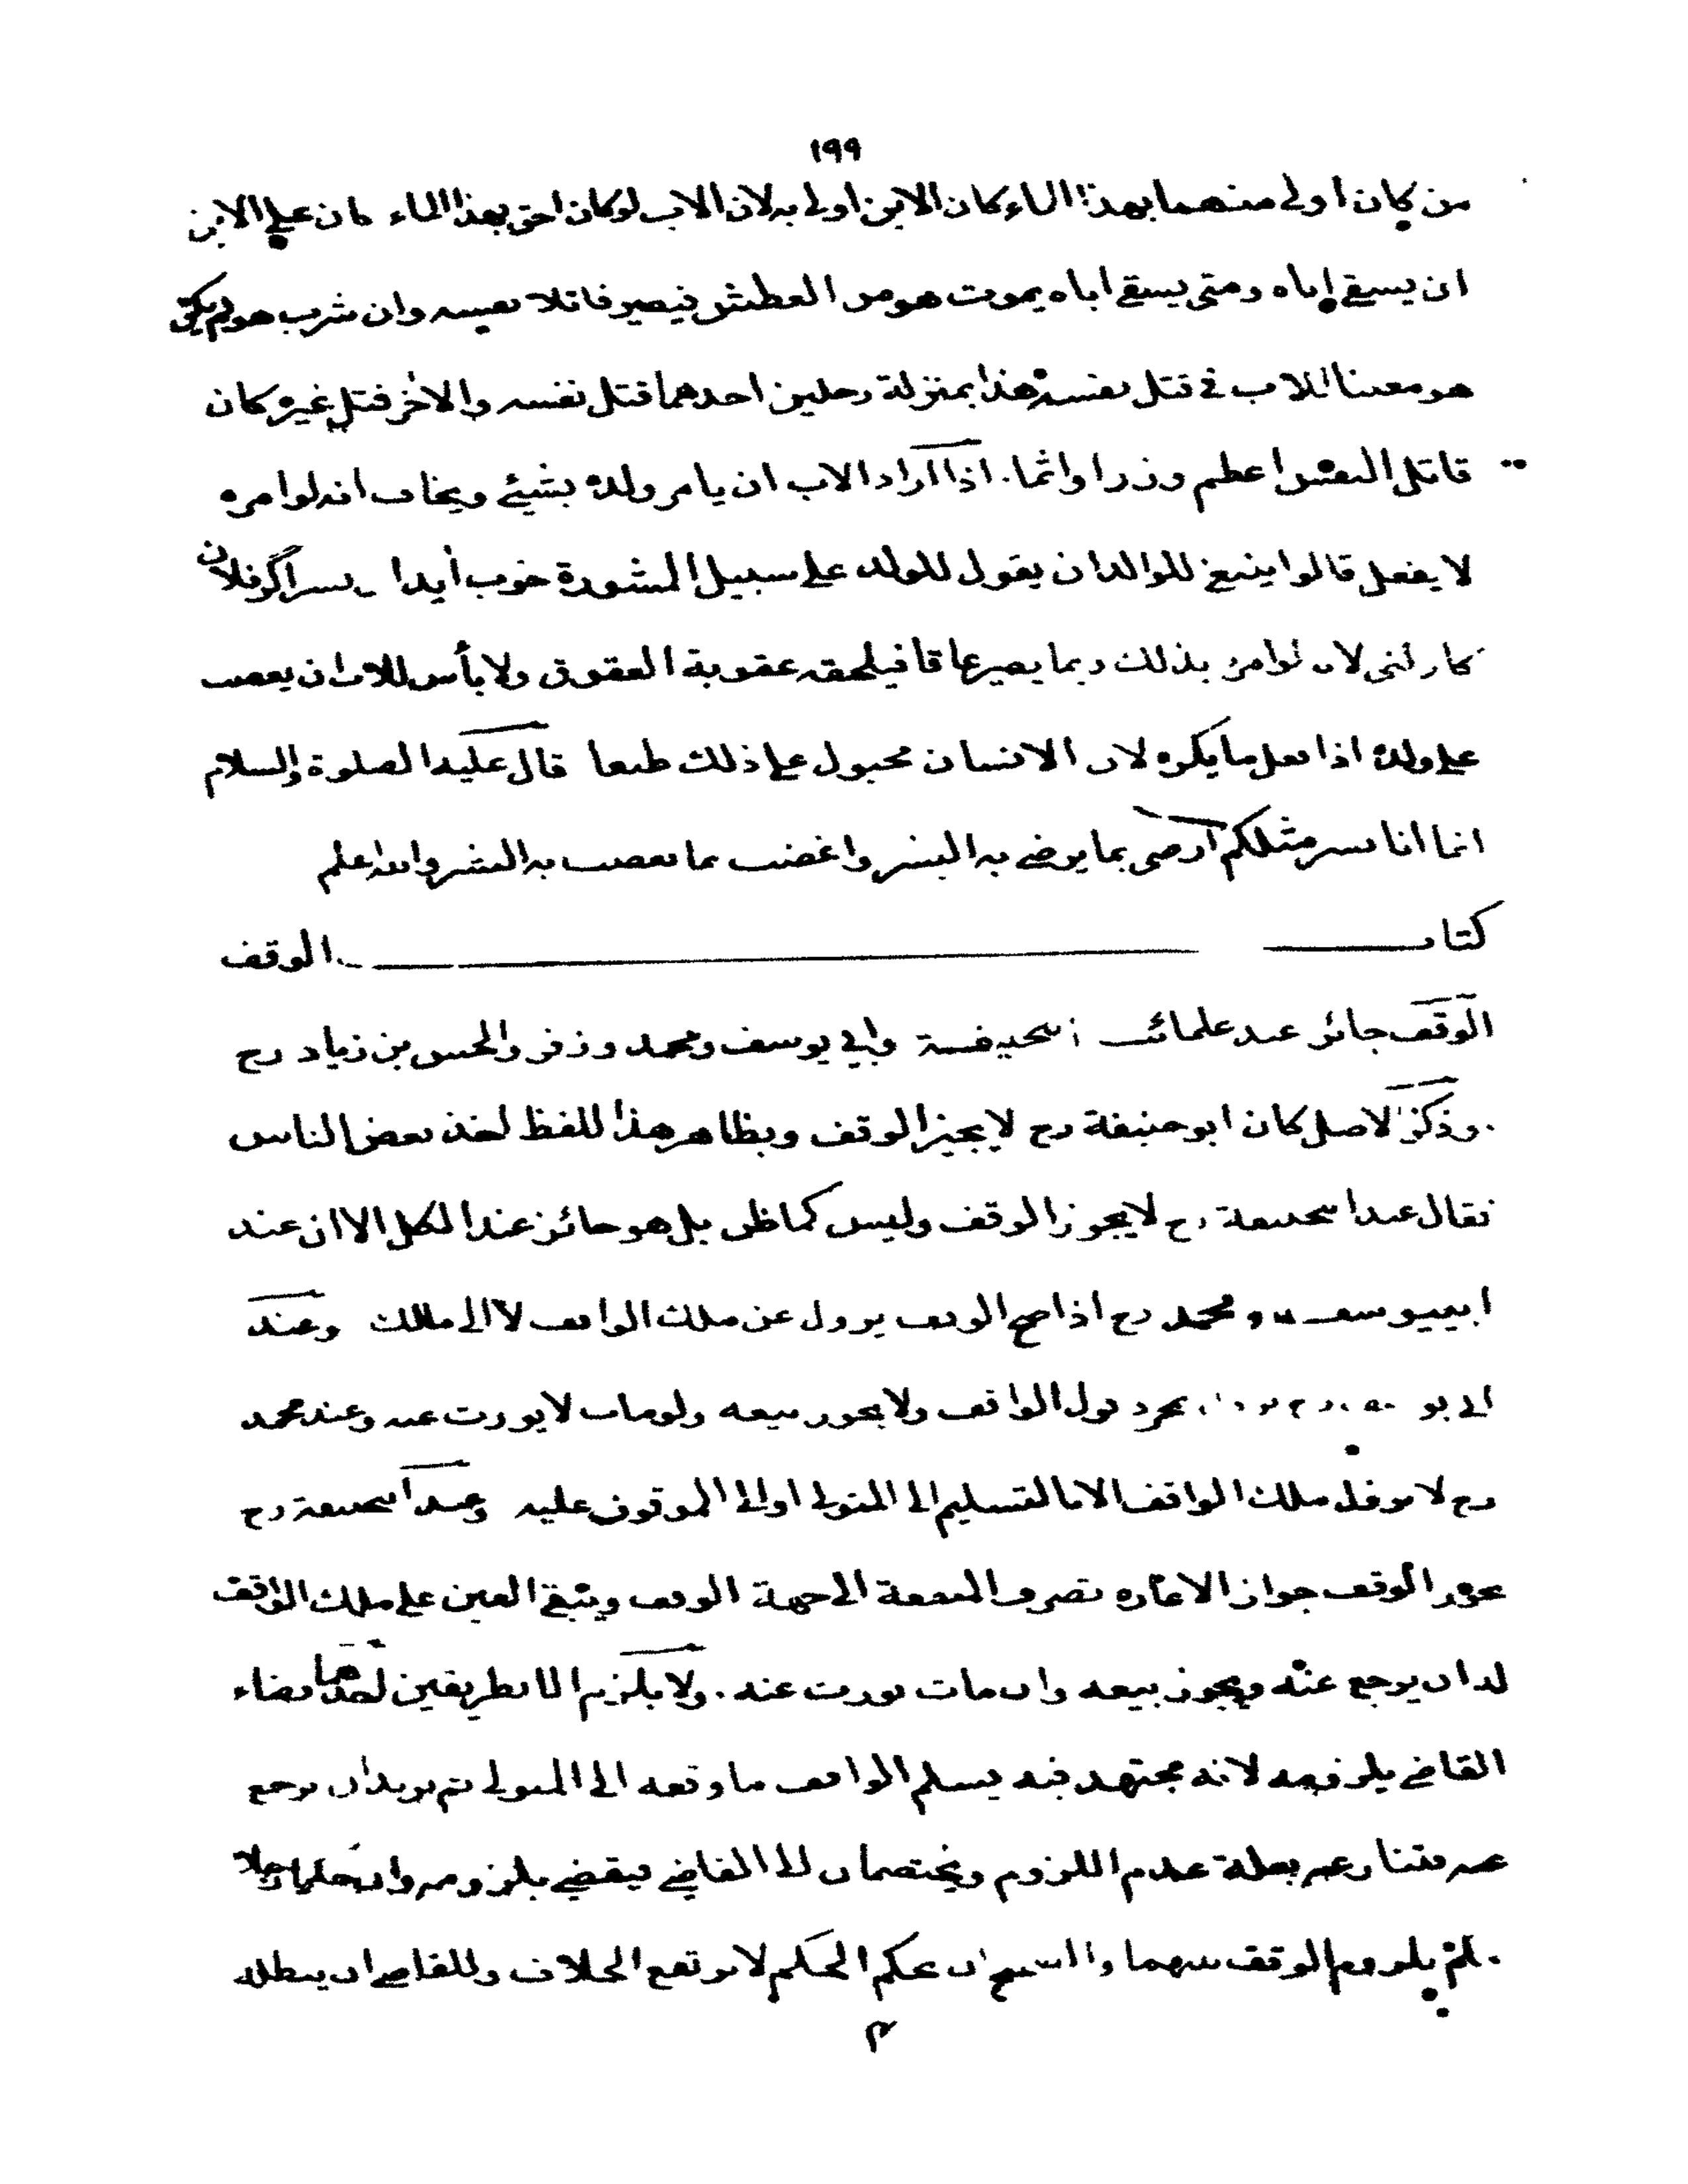 ١٩٩
من كان اولى منهما بهذا الماء كان الابن اولى به لان الاب لو كان احق بهذا الماء كان على الابن
ان يسقى اباه ومتى يسقى اباه يموت هو من العطش فيصير قاتلا نفسه وان شرب هو لم يكن
هو معينا للاب فى قتل نفسه هذا بمنزلة رجلين احدهما قتل نفسه والاخر قتل غيره كان
قاتل النفس اعظم وزرا واثما. اذا اراد الاب ان يامر ولده بشيئ ويخاف انه لو امره
لا يفعل قالوا ينبغى للوالد ان يقول للولد على سبيل المشورة خوب ايد ا پسر اگر فلان
كار كنى لان لو امره بذلك ربما يصير عاقا فيلحقه عقوبة العقوق ولا بأس للاب ان يغضب
على ولده اذا فعل ما يكره لان الانسان مجبول على ذلك طبعا قال عليه الصلوة والسلام
انما انا بشر مثلكم ارضى بما يرضى به البشر واغضب بما يغضب به البشر والله اعلم
كتاب الوقف
الوقف جائز عند علمائنا ابيحنيفة وابى يوسف ومحمد وزفر والحسن بن زياد رح
وذكر الاصل كان ابو حنيفة رح لا يجيز الوقف وبظاهر هذا اللفظ اخذ بعض الناس
فقال عند ابيحنيفة رح لا يجوز الوقف وليس كما ظن بل هو جائز عند الكل الا ان عند
ابييوسف ومحمد رح اذا صح الوقف يزول عن ملك الواقف لا الى مالك وعند
ابى يو بمجرد قول الواقف ولا يجوز بيعه ولو مات لا يورث عنه وعند محمد
رح لا يزول ملك الواقف الا بالتسليم الى المتولى او الى الموقوف عليه وعند ابيحنيفة رح
يجوز الوقف جواز الاعاره تصرف المنفعة الى جهة الوقف ويبقى العين على ملك الواقف
له ان يرجع عنه ويجوز بيعه وان مات يورث عنه. ولا يلزم الا بطريقين احدهما قضاء
القاضى بلزومه لانه مجتهد فيه يسلم الواقف ما وقفه الى المتولى ثم يريد ان يرجع
عنه بعلة عدم اللزوم ويختصمان الى القاضى فيقضى بلزومه وان حكما رجلا
بلزوم الوقف بينهما بحكم الحكم لا يرتفع الخلاف وللقاضى ان يبطله
م